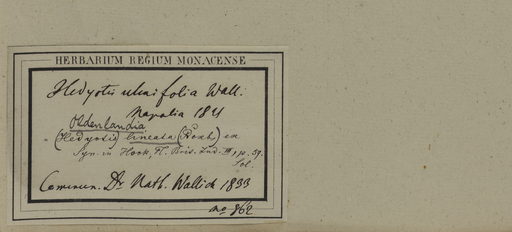 HERBARIUM REGIUM MONACENSE
Hedyotis ulmifolia Wall.
Napalia 1821
Oldenlandia
(Hedyotis) lineata (Roxb) ex
Syn. in Hook, Fl. Bris. Ind. III, p. 59.
Commun. Dr Nath. Wallich 1833
no 862